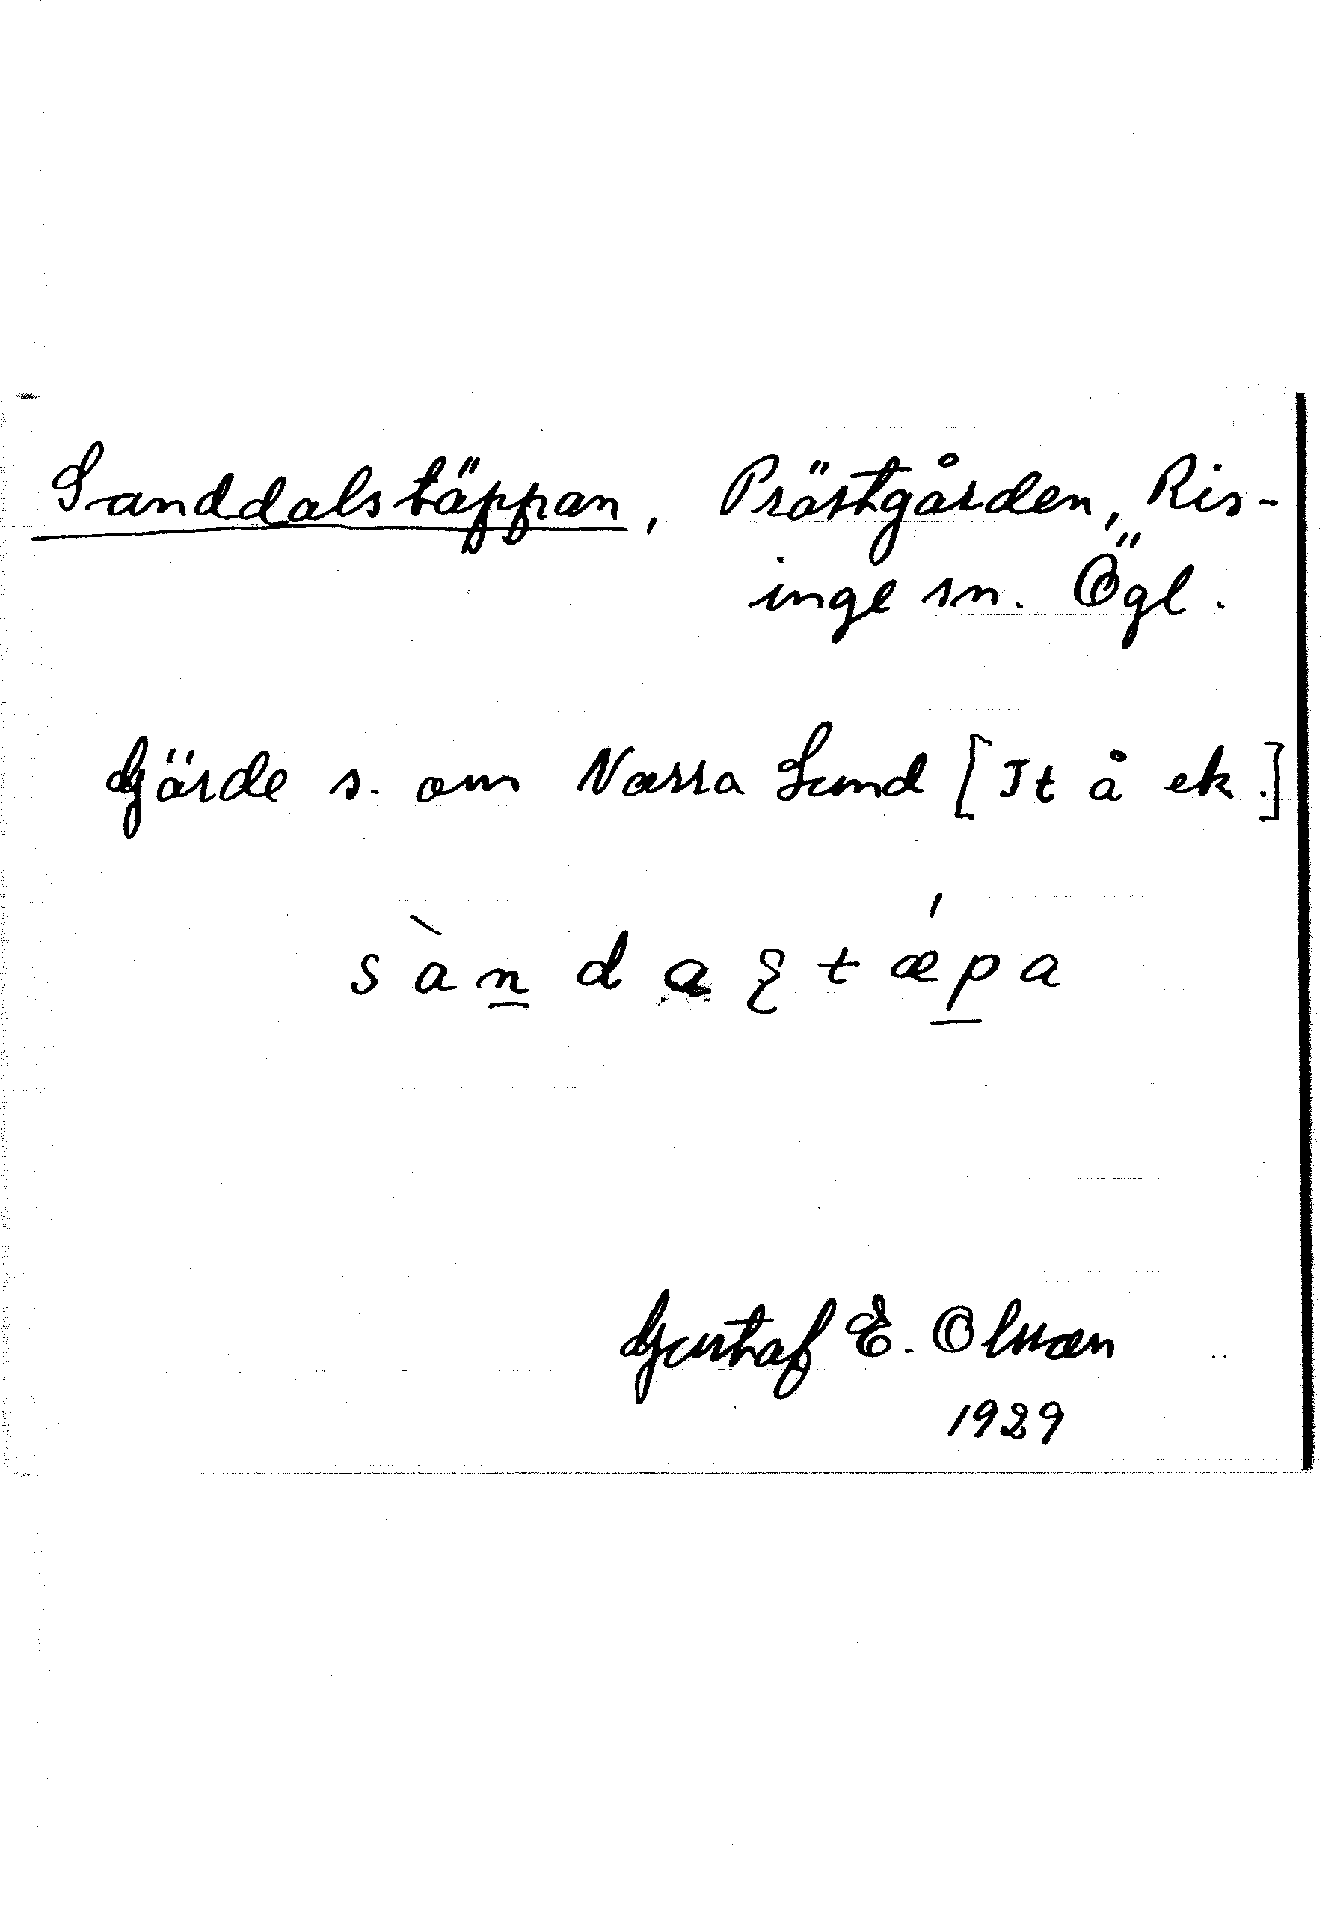 Sanddalstäppan, Prästgården, Ris-
inge sn. Ögl.
Gärde s. om Norra Sund [It å ek.]
sàndaʂtǽpa
Gustaf E. Olsson
1929